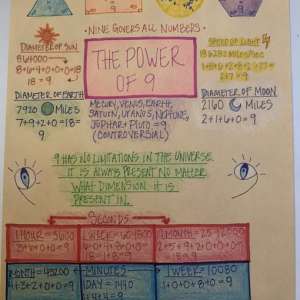 •NINE GOVERS ALL NUMBERS•
DIAMETER OF SUN
864000
8+6+4+0+0+0=18
18=9
THE POWER
OF 9
SPEED OF LIGHT
186282 Miles/Sec
DIAMETER OF EARTH
7920 Miles
7+9+2+0=18=
9
MECURY, VENUS, EARTH,
SATURN, URANUS, NEPTUNE,
JUPITAR+PLUTO=9
(CONTROVERSIAL)
DIAMETER OF MOON
2160 MILES
2+1+6+0=9
9 HAS NO LIMITATIONS IN THE UNIVERSE
IT IS ALWAYS PRESENT NO MATTER
WHAT DIMENSION IT IS
PRESENT IN.
SECONDS
1 HOUR=3600
3+6+0+0=9
1 WEEK=604800
6+0+4+8+0+0=
18=9
1 MONTH=2592000
2+5+9+2+0+0+0=
=18=9
MONTH=43200
4+3+2+0+0=9
MINUTES
1 DAY=1440
1+4+4=9
1 WEEK=10080
1+0+0+8+0=9